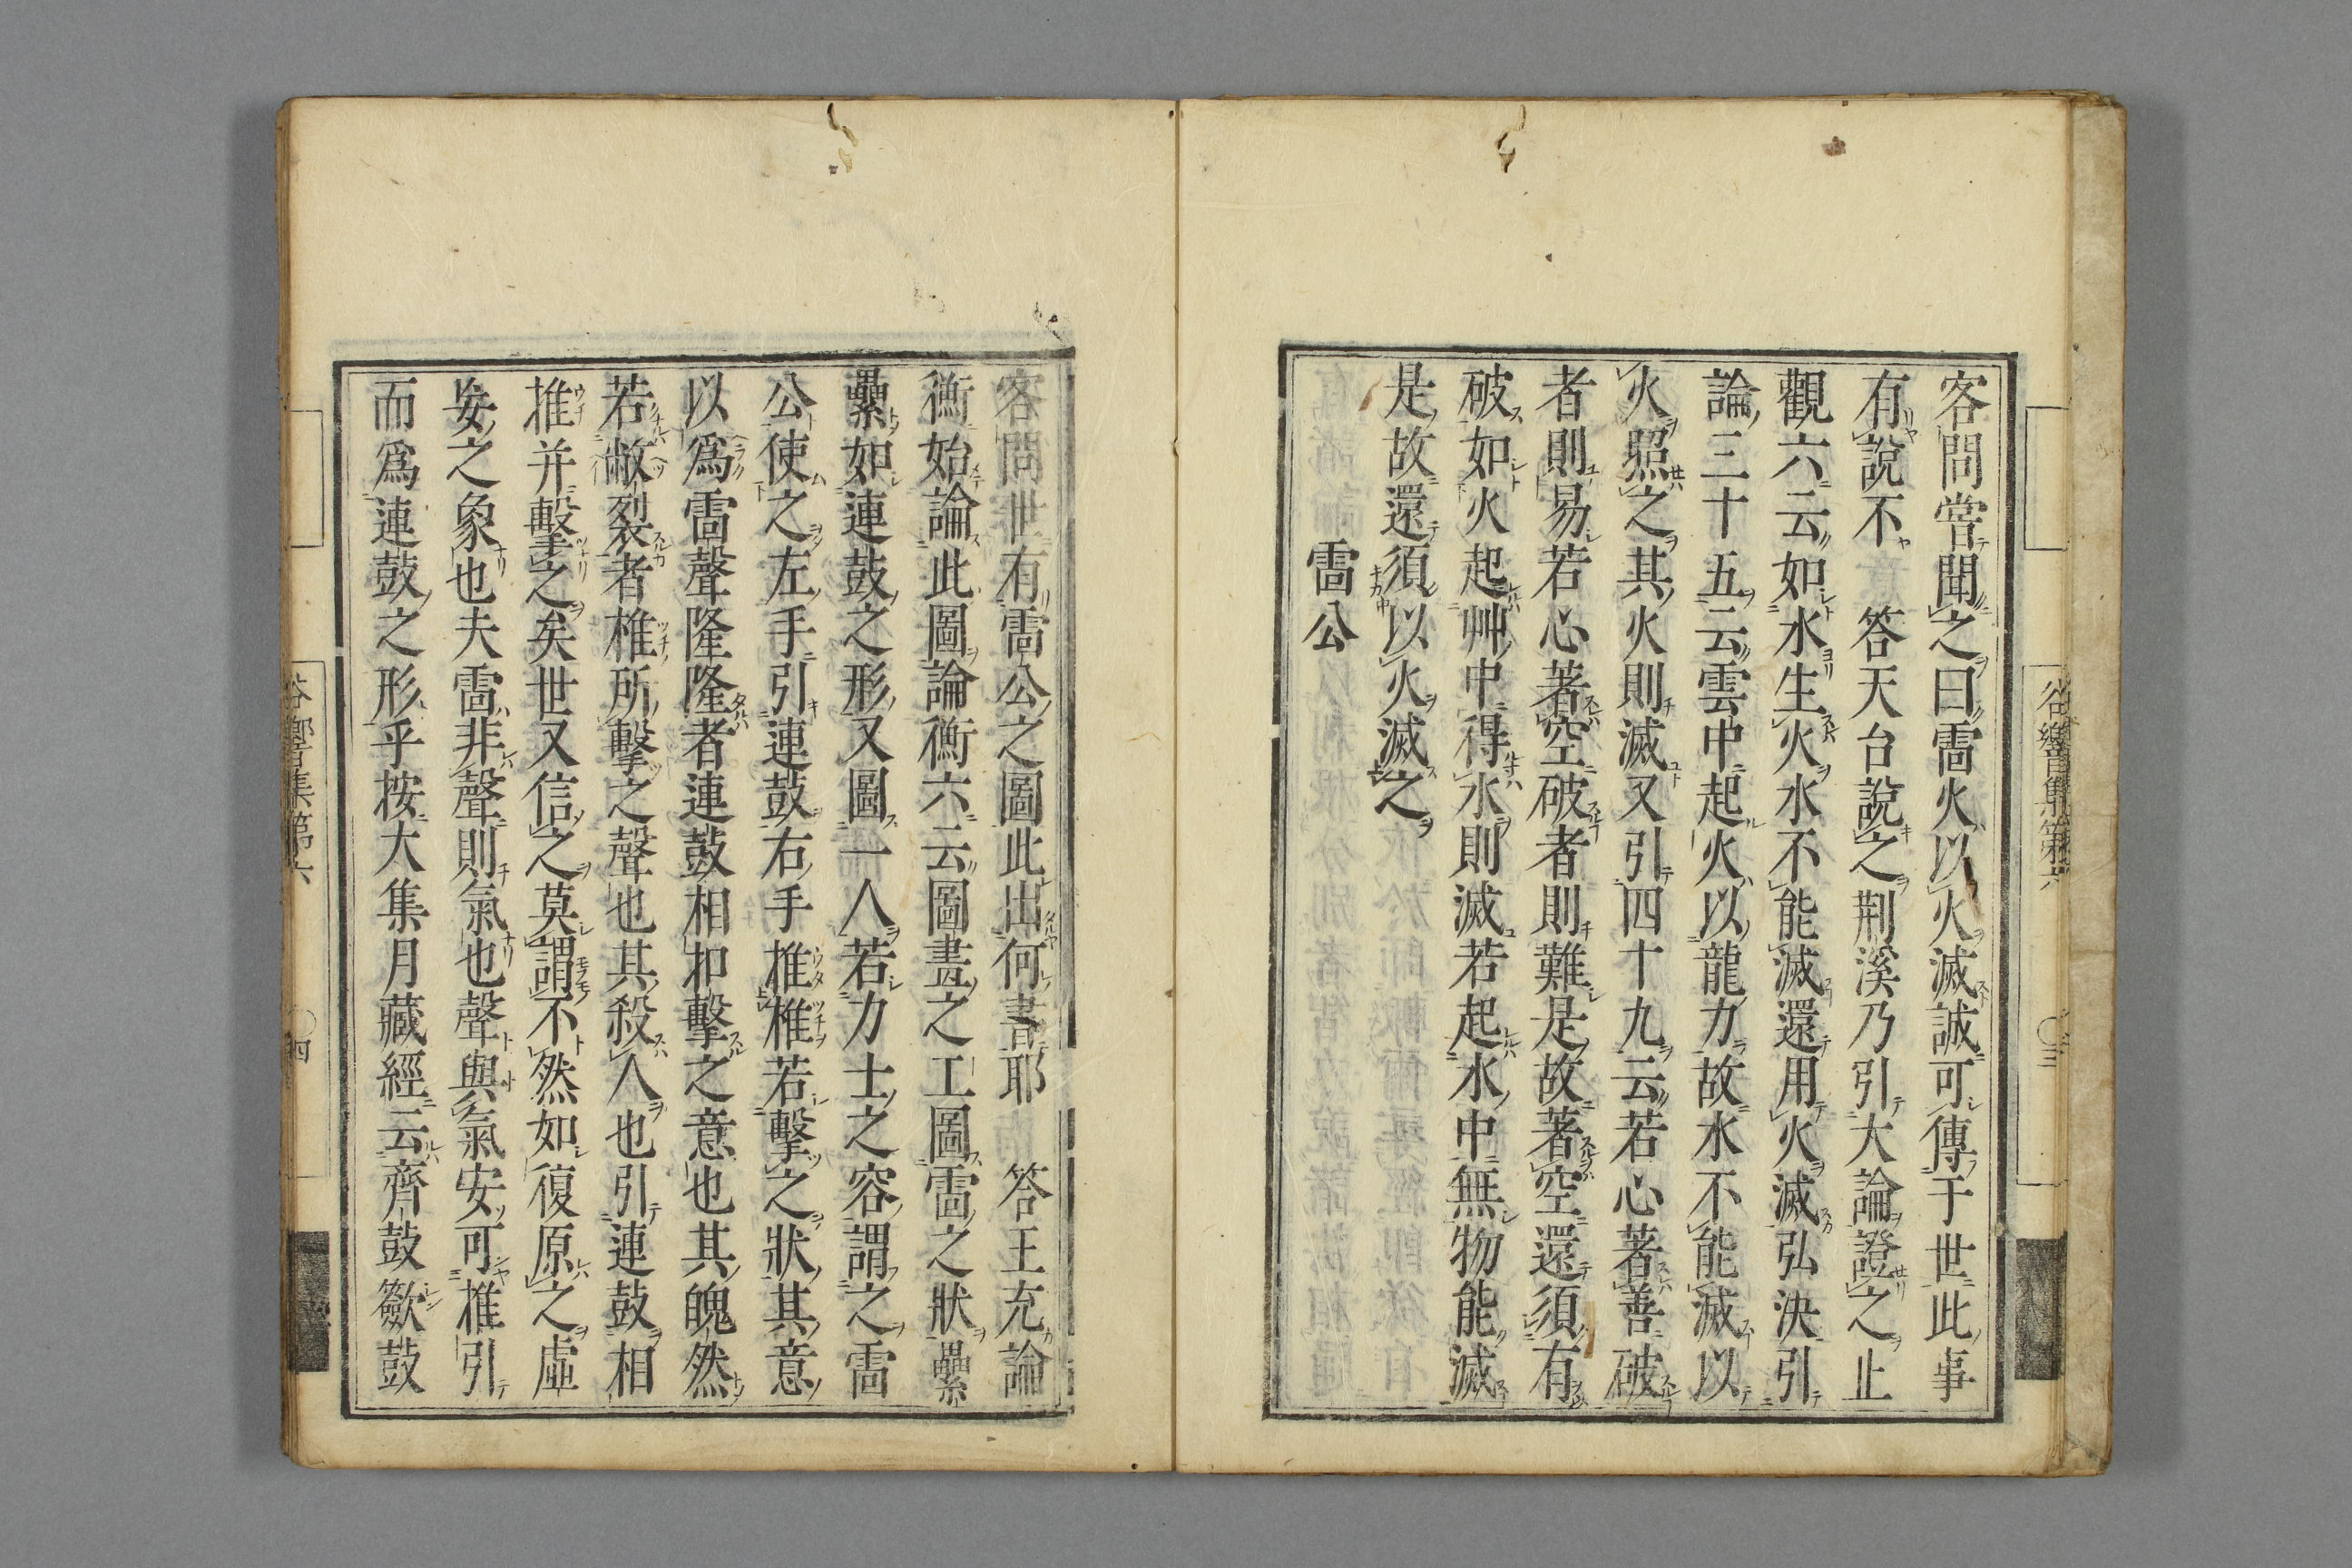 客問嘗聞之曰雷火以火滅誠可傳于世此事
有說不　答天台說之荆溪乃引大論證之止
觀六云如水生火水不能滅還用火滅弘決引
論三十五云雲中起火以龍力故水不能滅以
火照之其火則滅又引四十九云若心著善破
者則易若心著空破者則難是故著空還須有
破如火起艸中得水則滅若起水中無物能滅
是故還須以火滅之
雷公
客問世有雷公之圖此出何書耶　答王充論
衡始論此圖論衡六云圖畫之工圖雷之狀纍
纍如連鼓之形又圖一人若力士之容謂之雷
公使之左手引連鼓右手推椎若擊之狀其意
以爲雷聲隆隆者連鼓相扣擊之意也其魄然
若敝裂者椎所擊之聲也其殺人也引連鼓相
推并擊之矣世又信之莫謂不然如復原之虛
妄之象也夫雷非聲則氣也聲與氣安可推引
而爲連鼓之形乎按大集月藏經云齊鼓簸鼓
谷響集第六
三
谷響集第六
四